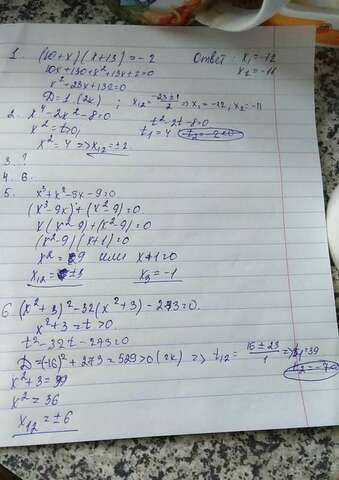 1. (10+x)(x+13)=-2 Ответ: x₁=-12
10x+130+x²+13x+2=0 x₂=-11
x²+23x+132=0
D=1 (2к) ; x₁₂=(-23±1)/2 => x₁=-12, x₂=-11
2. x⁴-2x²-8=0 t²-2t-8=0
x²=t>0, t₁=4
x²=4=>x₁₂=±2
3. ?
4. 6.
5. x³+x²-9x-9=0
(x³-9x)+(x²-9)=0
x(x²-9)+(x²-9)=0
(x²-9)(x+1)=0
x²=9 или x+1=0
x₁₂=±3 x₃=-1
6. (x²+3)²-32(x²+3)-273=0.
x²+3=t>0.
t²-32t-273=0
D=(-16)²+273=529>0(2к) => t₁₂=(16±23)/1=>t₁=39
x²+3=39 t₂=-7
x²=36
x₁₂=±6